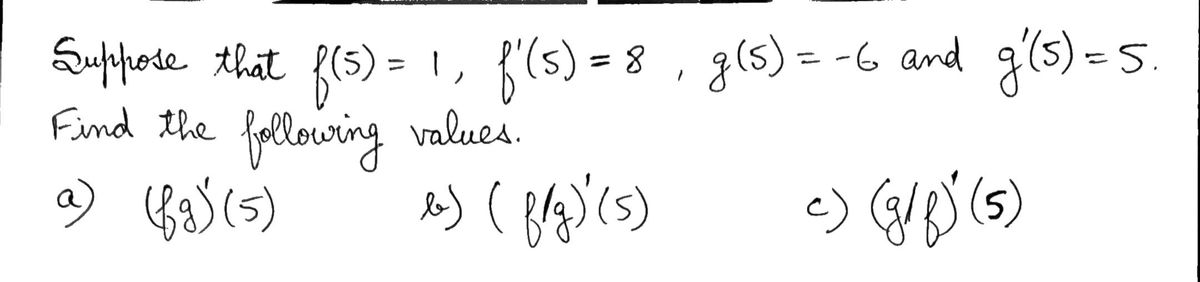 Suppose that f(5) = 1, f'(5) = 8, g(5) = -6 and g'(5) = 5.
Find the following values.
a) (fg)'(5) b) (f/g)'(5) c) (g/f)'(5)